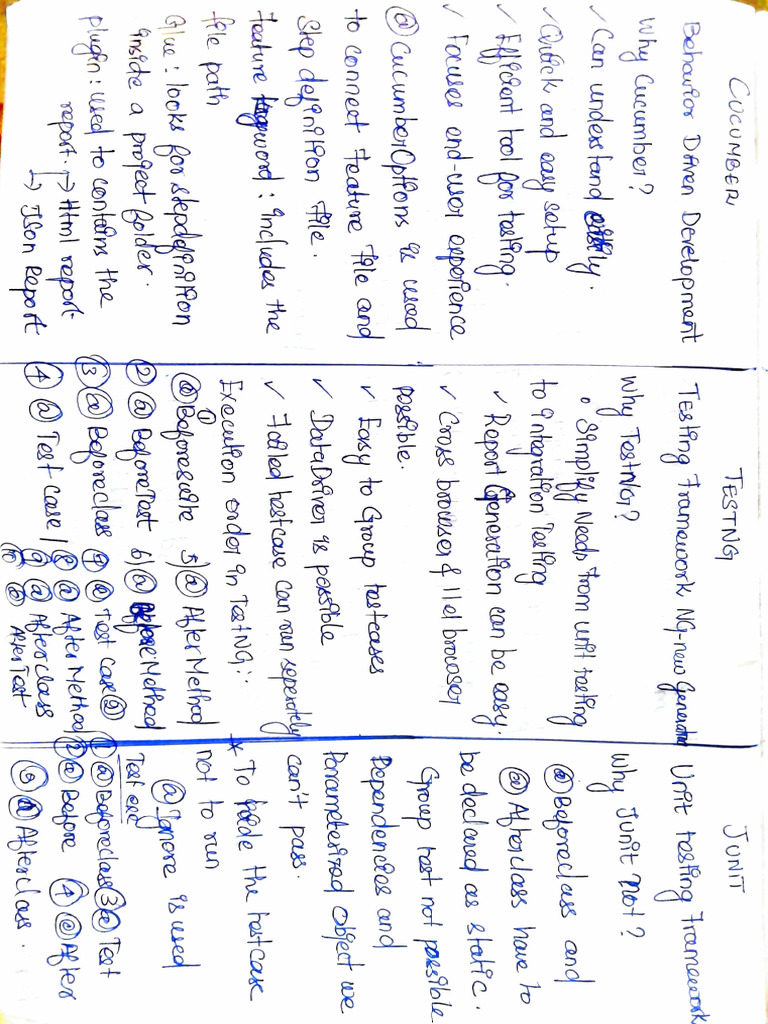 CUCUMBER
Behavior Driven Development
Why Cucumber?
✓ Can understand easily.
✓ Quick and easy setup
✓ Efficient tool for testing.
✓ Focuses end-user experience
@CucumberOptions is used
to connect Feature file and
Step definition File.
Feature keyword : includes the
file path
Glue : looks for stepdefinition
inside a project folder.
plugin : used to contains the
report. → Html report
→ Json Report
TESTNG
Testing Framework NG-new Generatn
Why TestNG?
• Simplify Needs from unit testing
to integration Testing
✓ Report Generation can be easy.
✓ Cross browser & llel browser
possible.
✓ Easy to Group testcases
✓ DataDriven is possible
✓ Failed testcase can run seperately
Execution order in TestNG:
① @Beforesuite 5) @AfterMethod
② @BeforeTest 6) @BeforeMethod
③ @Beforeclass ⑦ @ Test case ②
④ @ Test case 1 ⑧ @ AfterMethod
⑨ @ Afterclass
⑩ @ AfterTest
JUNIT
Unit testing Framework
Why Junit not?
@Beforeclass and
@Afterclass have to
be declared as static.
Group test not possible
Dependencies and
Parameterized object we
can't pass.
* To hide the testcase
not to run
@Ignore is used
Test exe
① @Beforeclass ③ @ Test
② @ Before ④ @ After
⑤ @ Afterclass.